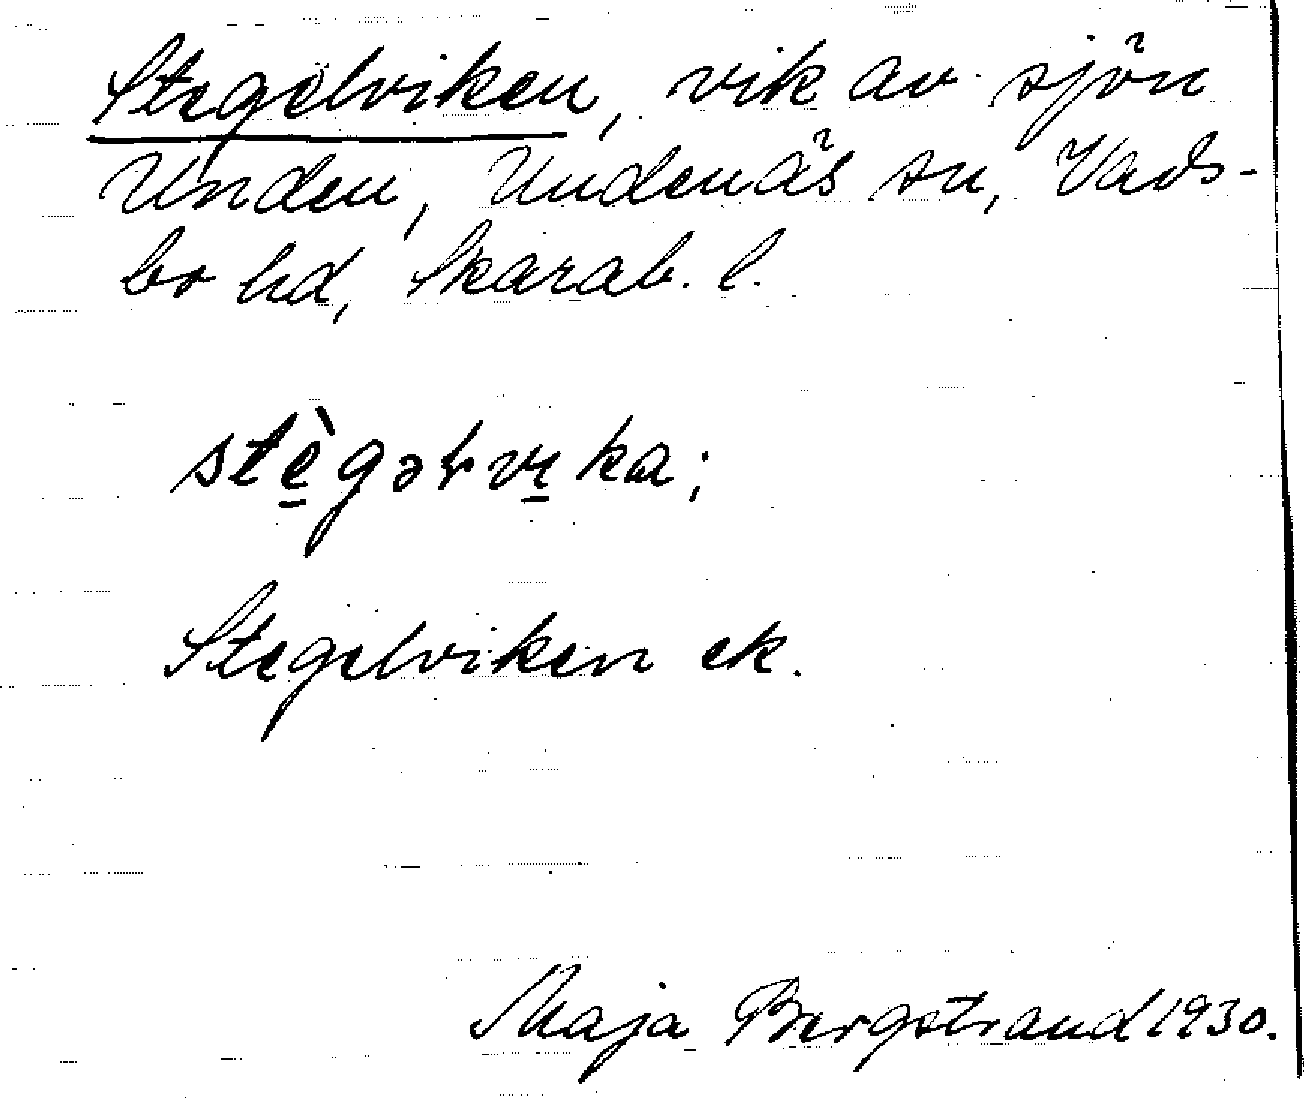 Stegelviken, vik av sjön
Unden, Undenäs sn, Vads-
bo hd, Skarab. l.
stè̠gəɫvı̠ka;
Stegelviken ek.
Maja Bergstrand 1930.